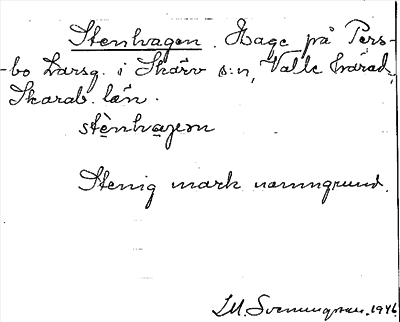 Stenhagen. Hage på Pers-
-bo Larsg. i Skärv s:n, Valle härad,
Skarab. län.
stènhagen
Stenig mark namngrund.
I.M. Svenungsson. 1946.